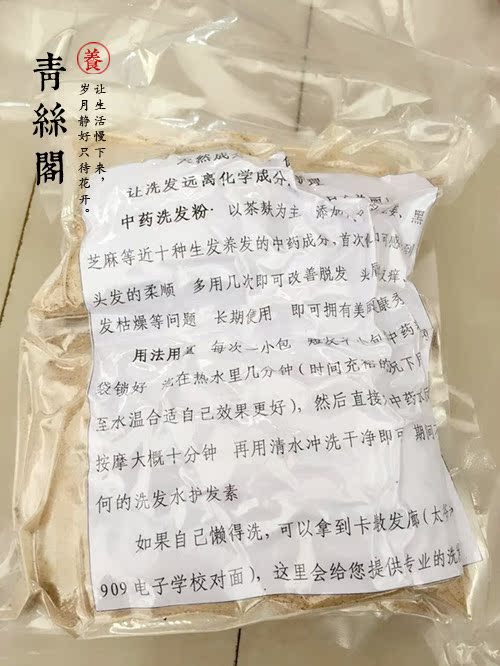 青絲閣
養
让生活慢下来，
岁月静好只待花开。
天然成
让洗发远离化学成分,
理
中药洗发粉：以茶麸为主 添加 黑
芝麻等近十种生发养发的中药成分,首次
头发的柔顺 多用几次即可改善脱发 头 痒、
发枯燥等问题 长期使用 即可拥有美 秀
用法用量 每次一小包 中药
袋锁好 在热水里几分钟(时间充 况下
至水温合适自己效果更好),然后直接 中药水
按摩大概十分钟 再用清水冲洗干净即可 期间
何的洗发水护发素
如果自己懒得洗,可以拿到卡 发廊(太
909电子学校对面),这里会给您提供专业的洗